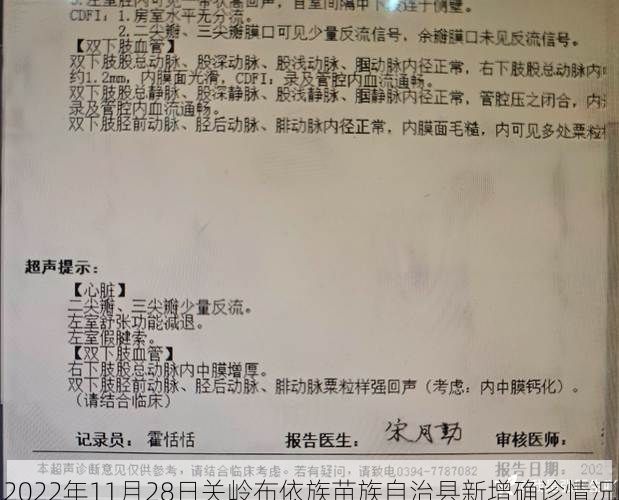 左室腔内可见一带状强回声，自室间隔中下段连于侧壁。
CDFI：1.房室水平无分流。
2.二尖瓣、三尖瓣膜口可见少量反流信号，余瓣膜口未见反流信号。
【双下肢血管】
双下肢股总动脉、股深动脉、股浅动脉、腘动脉内径正常，右下肢股总动脉内中
约1.2mm，内膜面光滑，CDFI：录及管腔内血流通畅。
双下肢股总静脉、股深静脉、股浅静脉、腘静脉内径正常，管腔压之闭合，内
录及管腔内血流通畅。
双下肢胫前动脉、胫后动脉、腓动脉内径正常，内膜面毛糙，内可见多处粟粒
超声提示：
【心脏】
二尖瓣、三尖瓣少量反流。
左室舒张功能减退。
左室假腱索。
【双下肢血管】
右下肢股总动脉内中膜增厚。
双下肢胫前动脉、胫后动脉、腓动脉粟粒样强回声（考虑：内中膜钙化）。
（请结合临床）
记录员：霍恬恬 报告医生：宋月勤 审核医师：
本超声诊断意见仅供参考，请结合临床考虑。若有疑问，请致电0394-7787680 报告日期：202
2022年11月28日关岭布依族苗族自治县新增确诊情况